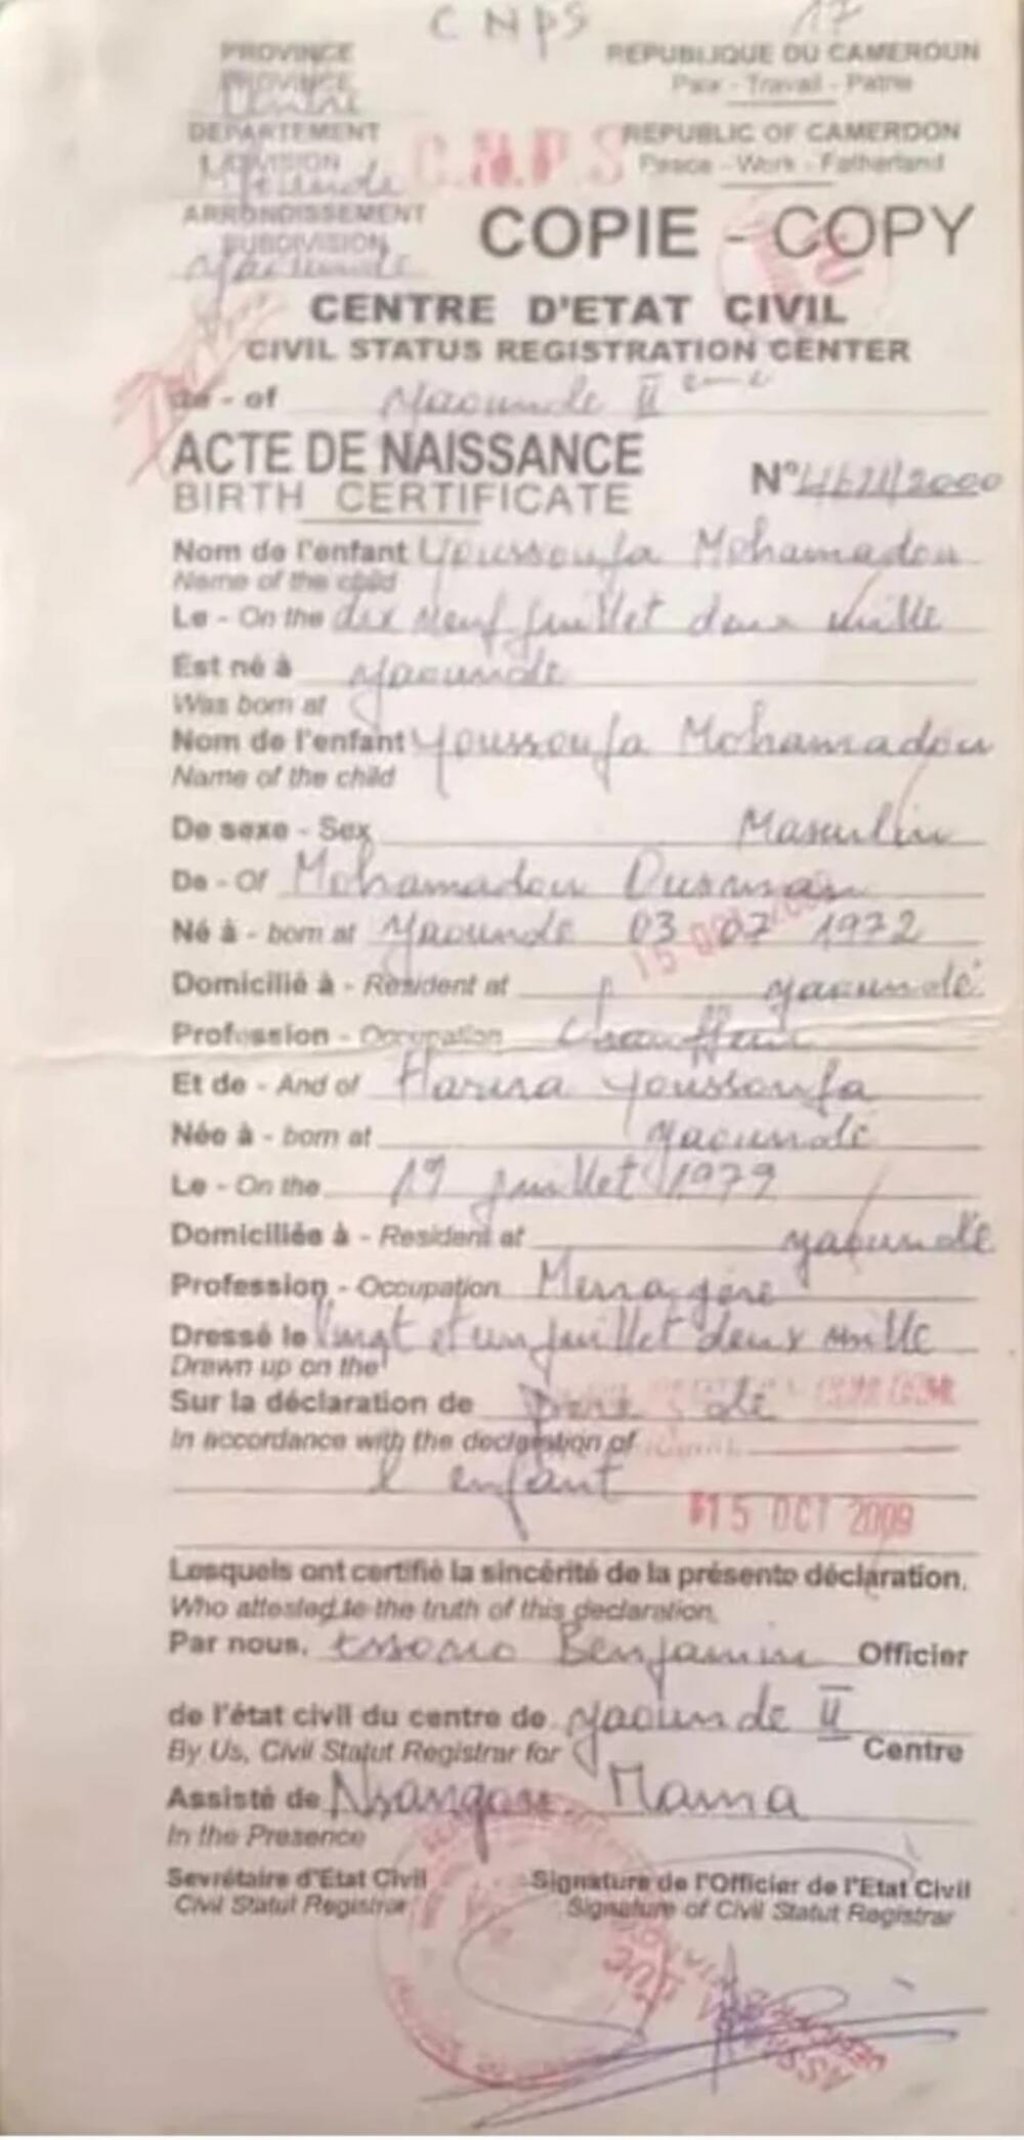 C N P S
17
PROVINCE
PROVINCE
Centre
DEPARTEMENT
DIVISION
ARRONDISSEMENT
SUBDIVISION
Yaounde
REPUBLIQUE DU CAMEROUN
Paix - Travail - Patrie
REPUBLIC OF CAMEROON
Peace - Work - Fatherland
C.N.P.S
COPIE - COPY
CENTRE D'ETAT CIVIL
CIVIL STATUS REGISTRATION CENTER
De - of Yaounde II eme
ACTE DE NAISSANCE
BIRTH CERTIFICATE
N° /2000
Nom de l'enfant Youssoufa Mohamadou
Name of the child
Le - On the dix neuf juillet deux mille
Est né à Yaounde
Was born at
Nom de l'enfant Youssoufa Mohamadou
Name of the child
De sexe - Sex Masculin
De - Of Mohamadou Ousman
Né à - born at Yaounde 03 07 1972
Domicilié à - Resident at Yaoundé
Profession - Occupation Chauffeur
Et de - And of Youssoufa
Née à - born at Yaoundé
Le - On the 19 juillet 1979
Domiciliée à - Resident at Yaoundé
Profession - Occupation Menagère
Dressé le Vingt et un juillet deux mille
Drawn up on the
Sur la déclaration de père de
In accordance with the declaration of
l'enfant
15 OCT 2009
Lesquels ont certifié la sincérité de la présente déclaration.
Who attested to the truth of this declaration.
Par nous, Benjamin Officier
de l'état civil du centre de Yaounde II
By Us, Civil Statut Registrar for Centre
Assisté de Nsangou Mama
In the Presence
Sevrétaire d'Etat Civil
Civil Statut Registror
Signature de l'Officier de l'Etat Civil
Signature of Civil Statut Registrar